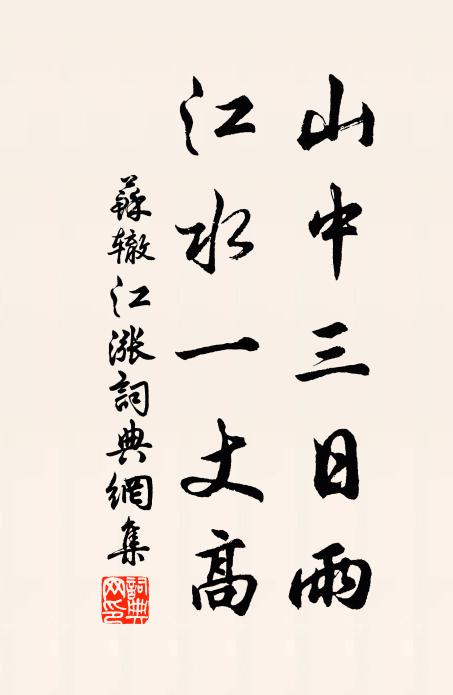 山中三日雨
江水一丈高
蘇辙江漲詞典網集
詞典
网印